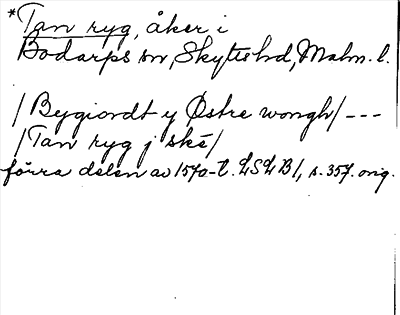 *Tan ryg, åker i
Bodarps sn, Skytts hd, Malm. l.
/Bygiordt y Østre wongh/ ---
/Tan ryg j ske/
förra delen av 1570-t. LSLB1, s. 357. orig.